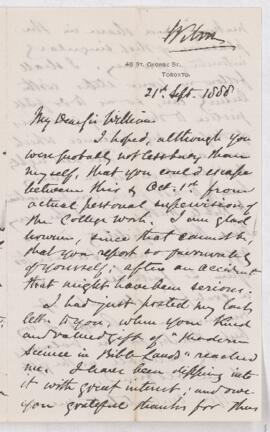 Wilson
46 St. George St.
Toronto.
21st Sept. 1888
My Dear Sir William
I hoped, although you
were probably not less busy than
myself, that you could escape
between this & Oct. 1st from
actual personal supervision of
the College work. I am glad
however, since that cannot be,
that you report so favourably
of yourself, after an accident
that might have been serious.
I had just posted my last
letter to you, when your kind
and valued gift of "Modern
Science in Bible Lands" reached
me. I have been dipping into
it with great interest; and owe
you grateful thanks for thus